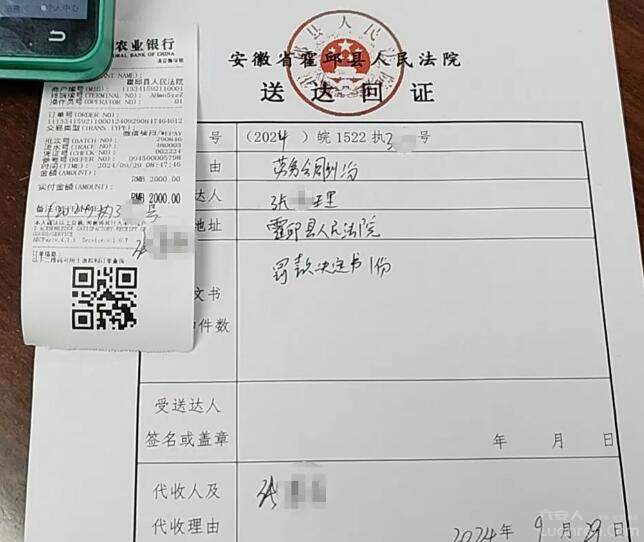 个人中心
农业银行
NAL BANK OF CHINA
霍邱县人民法院
商户编号(MID): 113341592110001
终端编号(TERMINAL NO):
操作员号(OPERATOR NO): 01
订单号(ORDER NO):
11334159211000124092908174646 12
交易类型(TRANS TYPE):
批次号(BATCH NO) 290846
流水号(TRACE NO) 480003
凭证号(CHECK NO) 000224
参考号(REFER NO) 094500005798
时间(TIME): 2024/09/29 08:47:46
金额(AMOUNT):
RMB 2000.00
实付金额(AMOUNT):
RMB 2000.00
I ACKNOWLEDGE SATISFACTORY RECEIPT
GOODS/SERVICE
订单信息
县人民法
安徽省霍邱县人民法院
送达回证
号 (2024) 皖1522执3 号
由 劳务合同纠纷
达人 张 理
地址 霍邱县人民法院
文书
件数 罚款决定书1份
受送达人
签名或盖章 年 月 日
代收人及
代收理由 张
2024年9月29日
六安人
Luanren.com